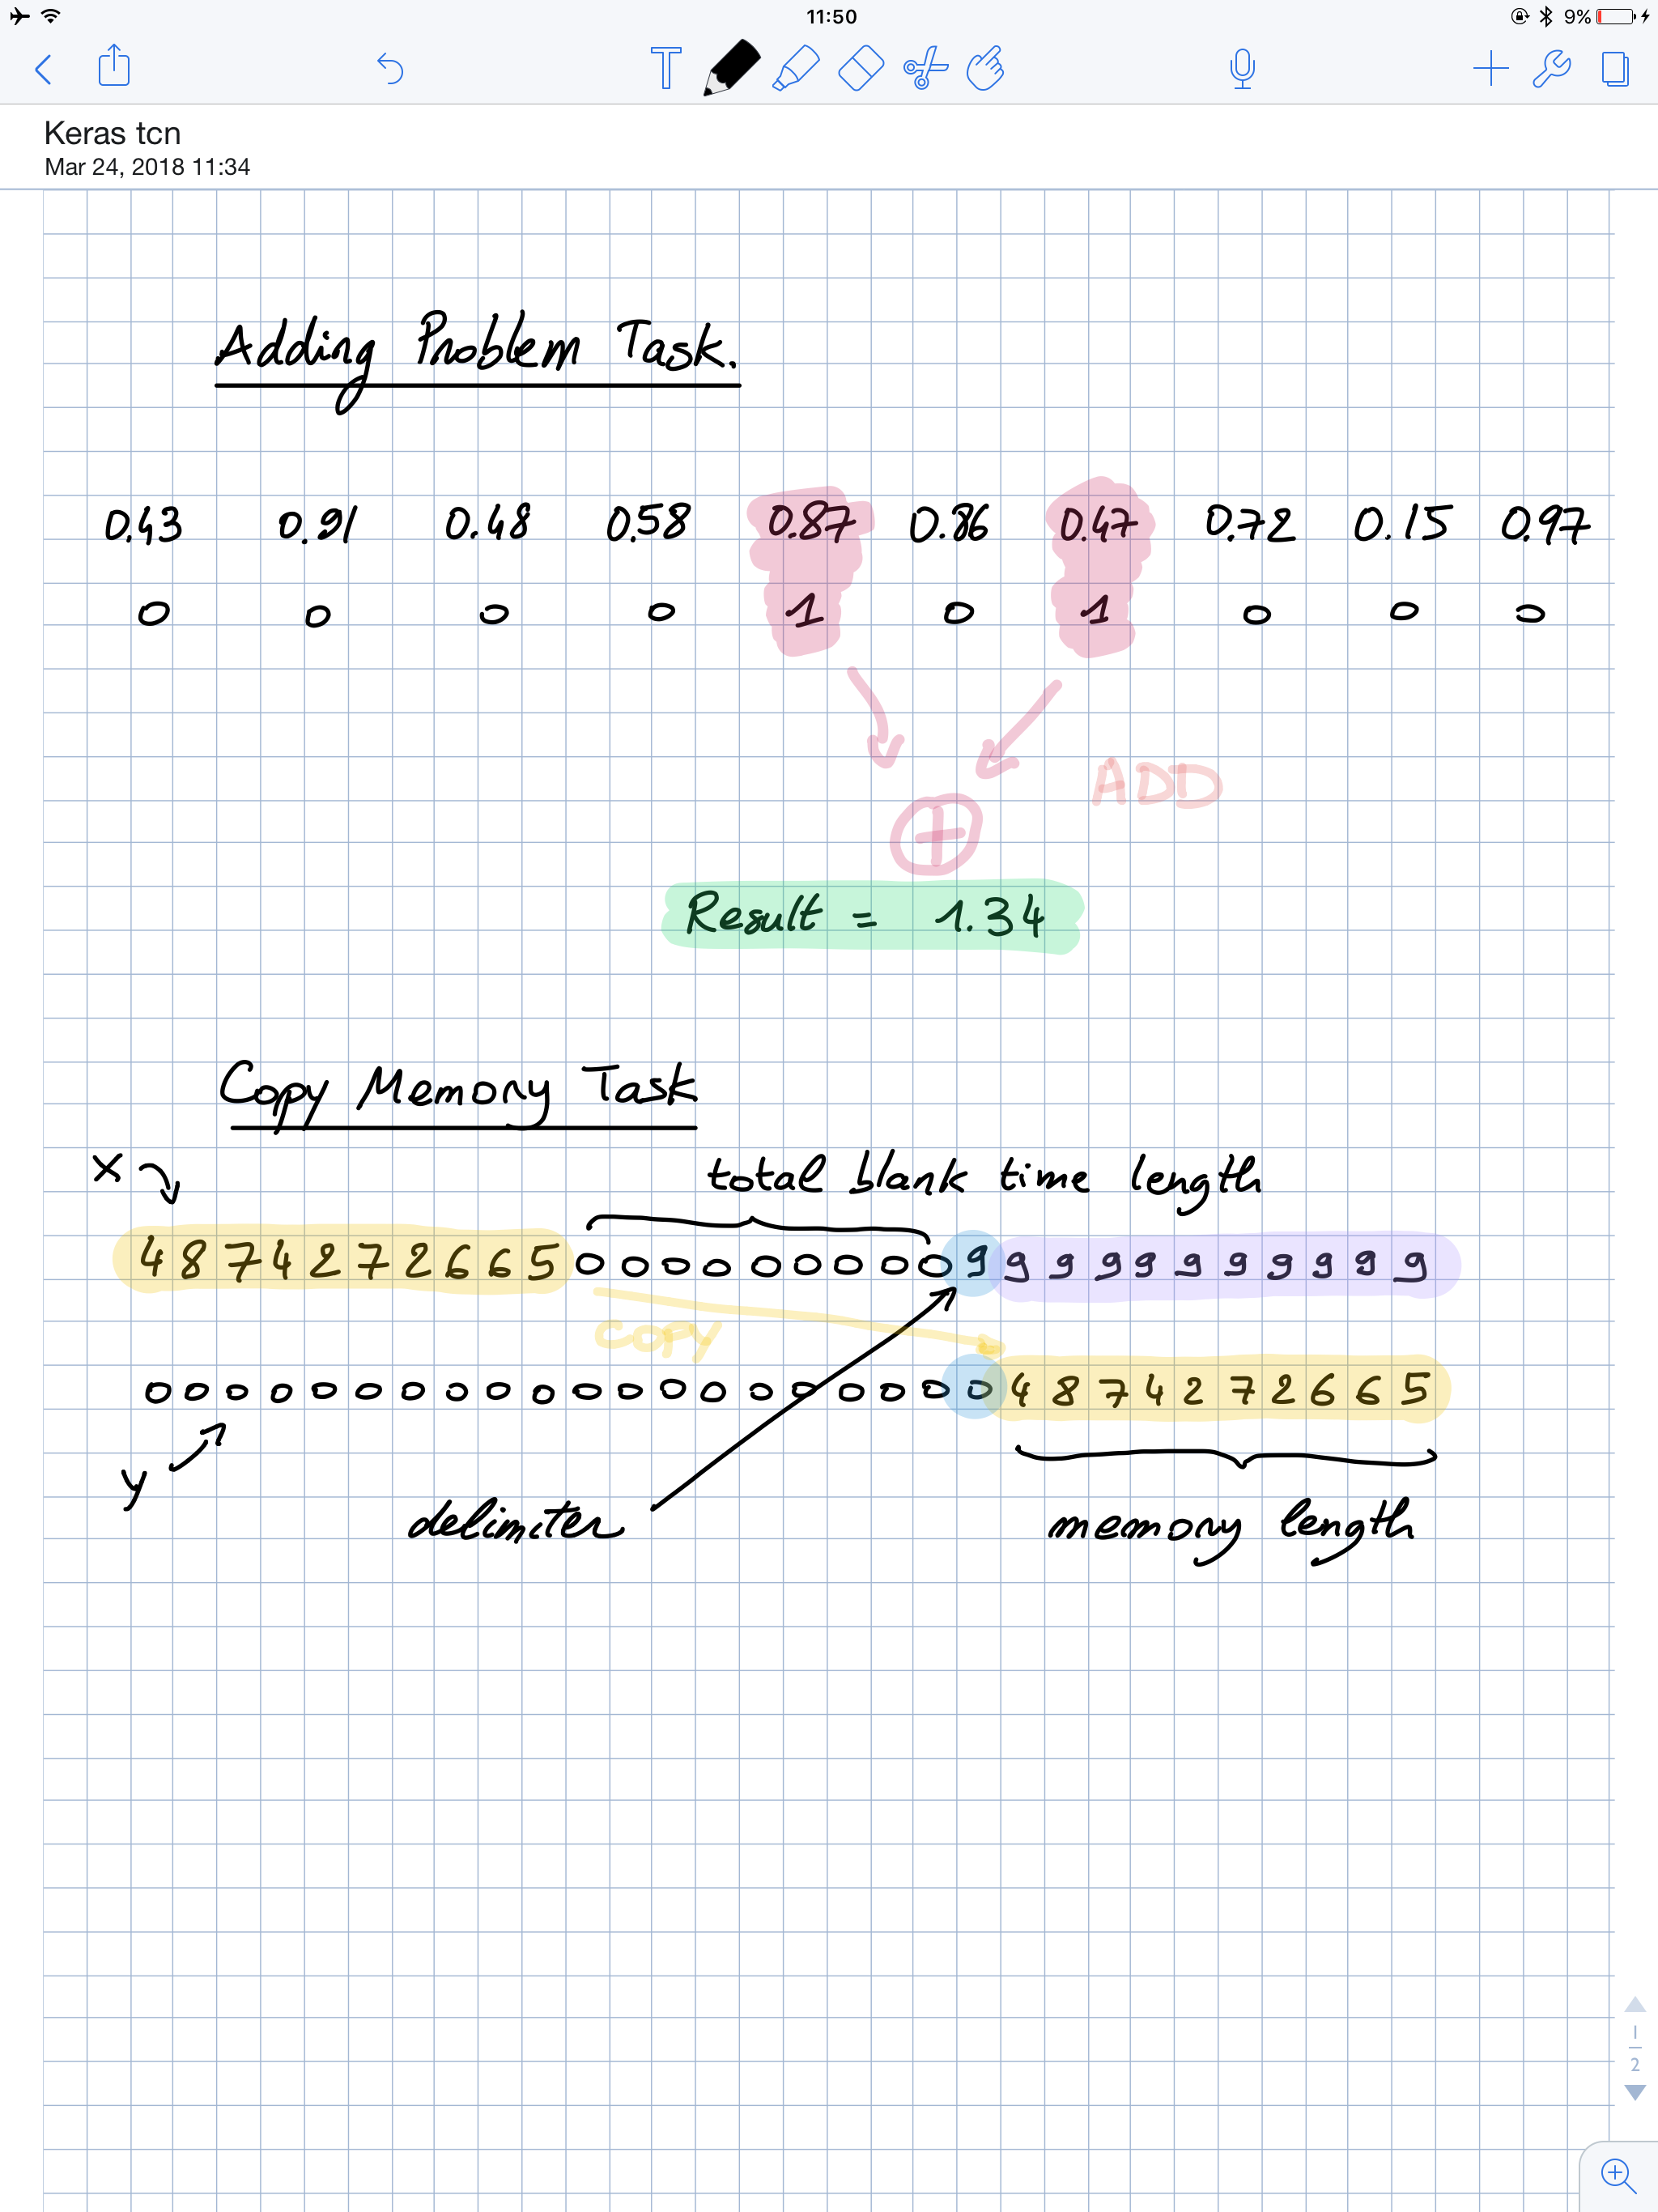 11:50
9%
T
Keras tcn
Mar 24, 2018 11:34
Adding Problem Task.
0.43 0.91 0.48 0.58 0.87 0.86 0.47 0.72 0.15 0.97
0 0 0 0 1 0 1 0 0 0
ADD
+
Result = 1.34
Copy Memory Task
x
total blank time length
4 8 7 4 2 7 2 6 6 5 0 0 0 0 0 0 0 0 0 9 9 9 9 9 9 9 9 9 9 9
COPY
0 0 0 0 0 0 0 0 0 0 0 0 0 0 0 0 0 0 0 0 4 8 7 4 2 7 2 6 6 5
y
delimiter
memory length
1
2